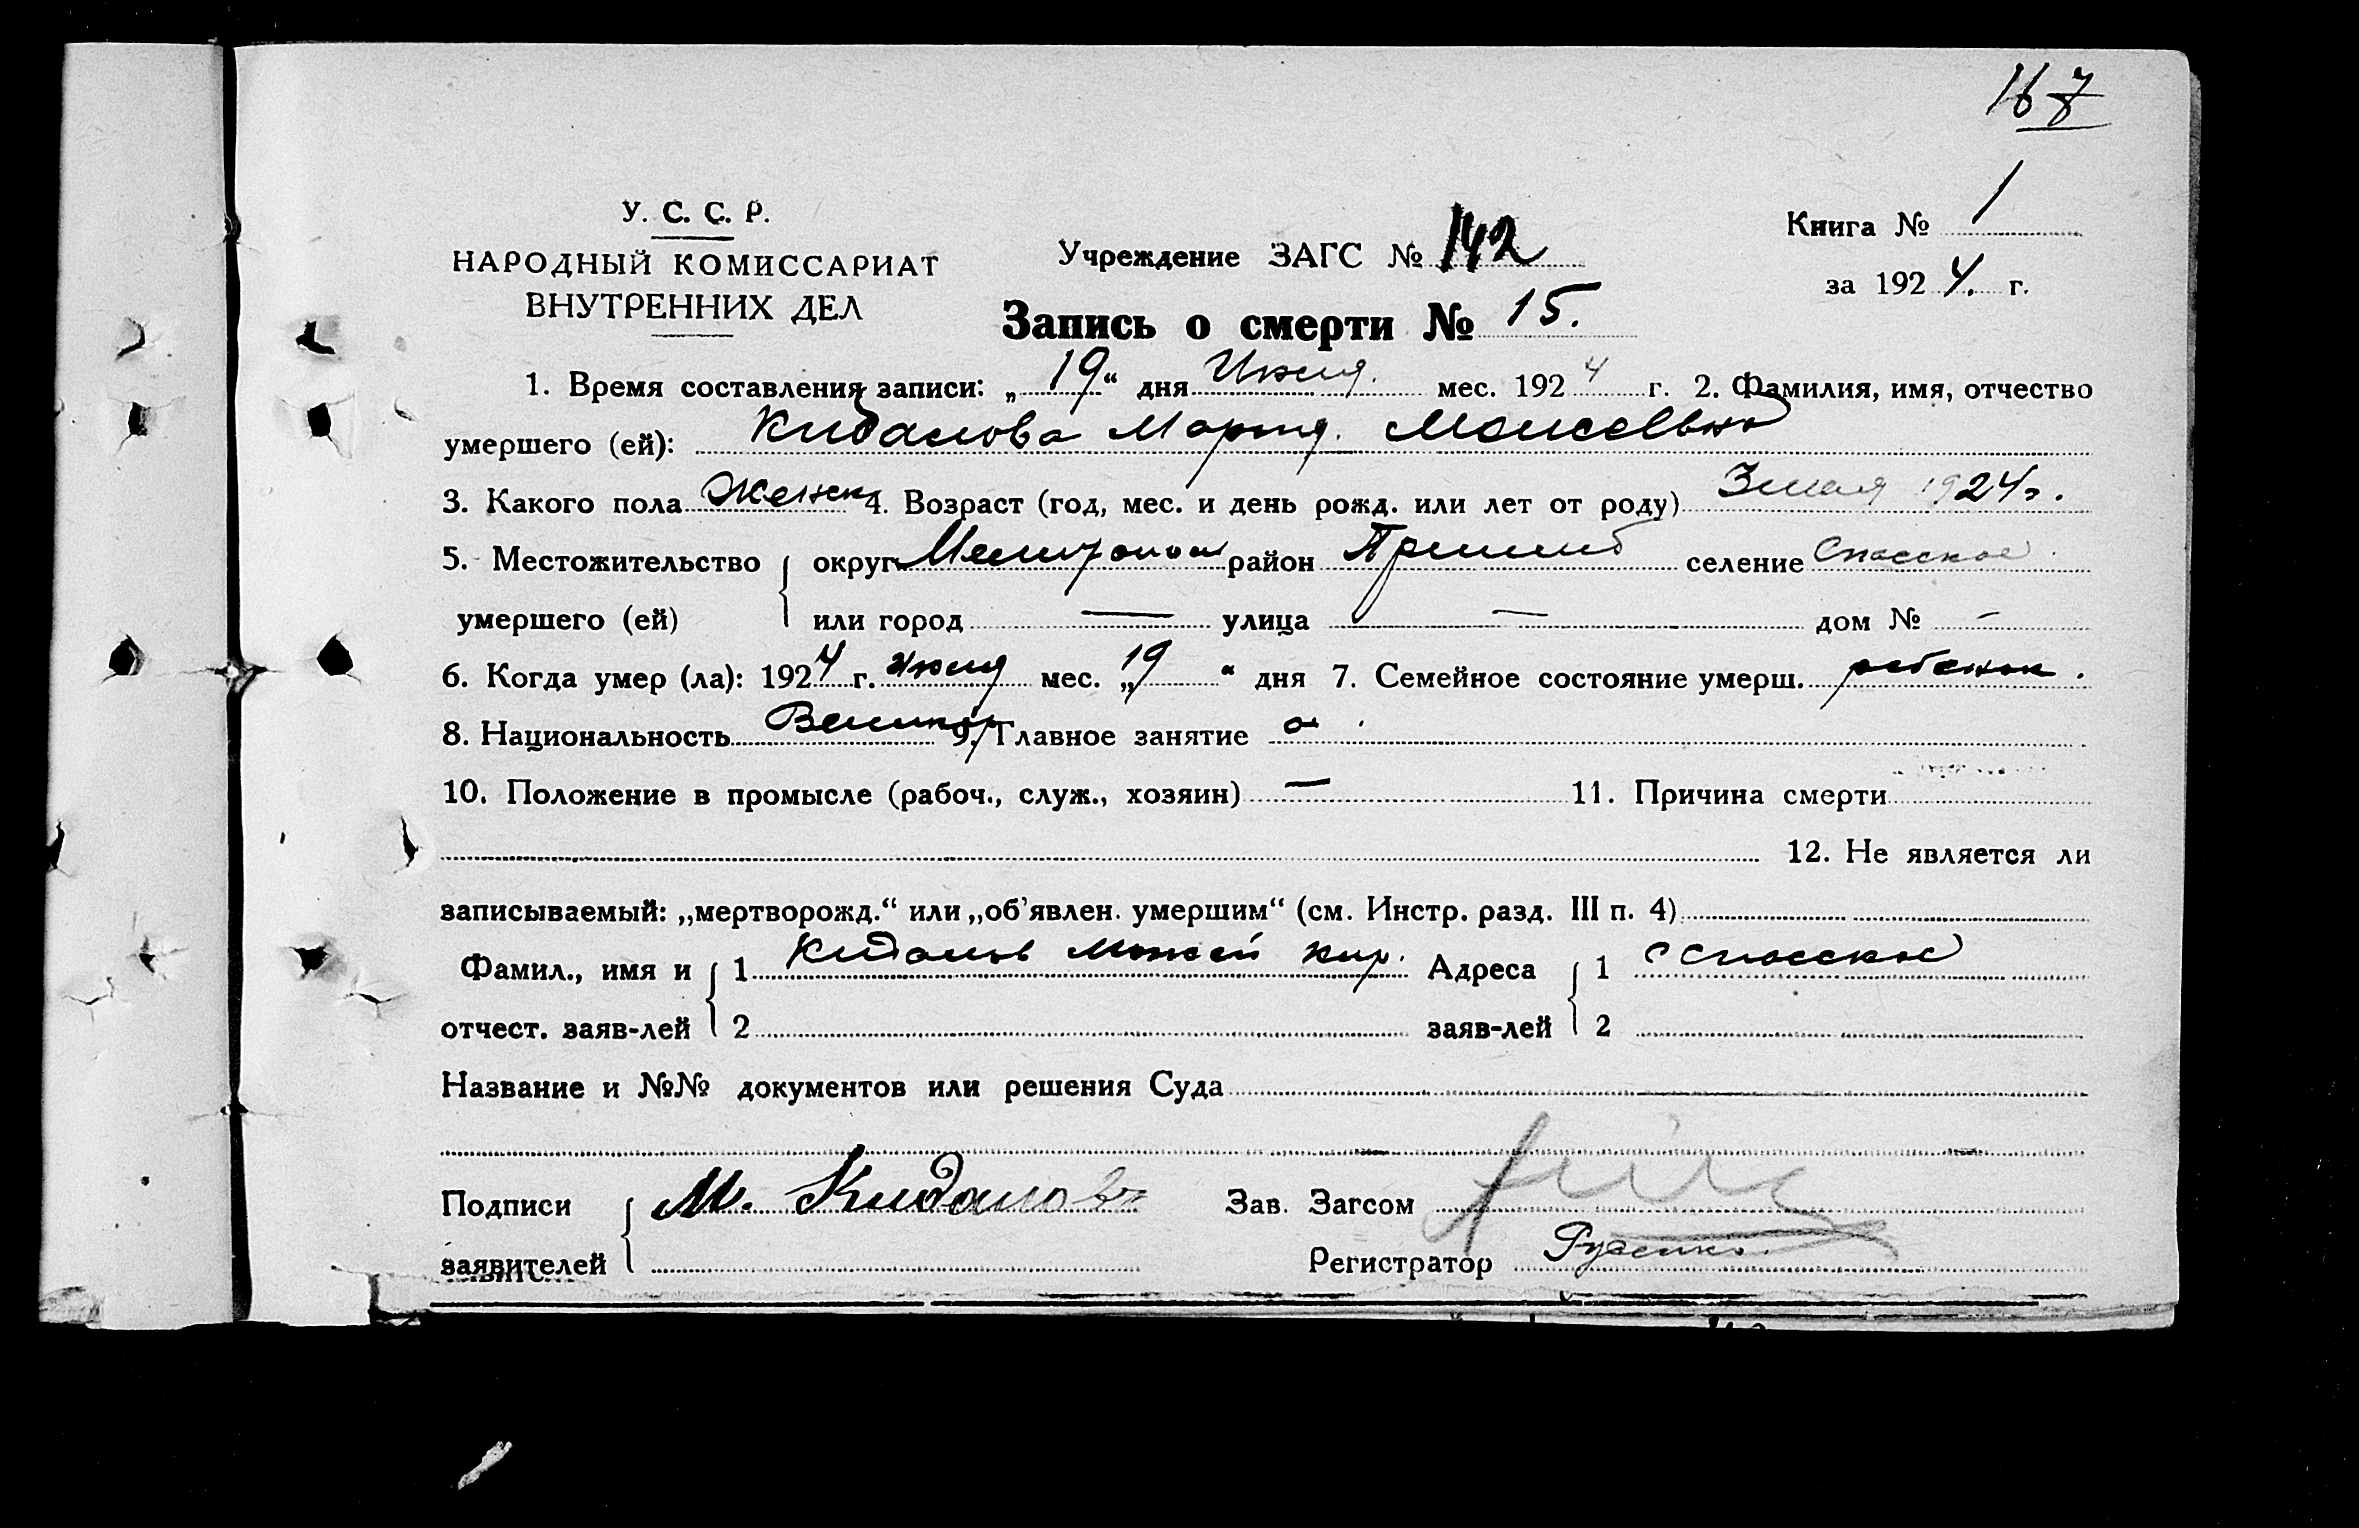 167
У. С. С. Р.
НАРОДНЫЙ КОМИССАРИАТ
ВНУТРЕННИХ ДЕЛ
Учреждение ЗАГС № 142
Книга № 1
за 1924. г.
Запись о смерти № 15.
1. Время составления записи: „19“ дня Июня. мес. 1924 г. 2. Фамилия, имя, отчество
умершего (ей): Кидалова Мария. Моисеевна
3. Какого пола Женск 4. Возраст (год, мес. и день рожд. или лет от роду) 3 мая 1924 г.
5. Местожительство округ Мелитопол район Пришиб селение Спасское
умершего (ей) или город — улица — дом № —
6. Когда умер (ла): 1924 г. июня мес. „19“ дня 7. Семейное состояние умерш. ребенок.
8. Национальность Великор 9. Главное занятие
10. Положение в промысле (рабоч., служ., хозяин) — 11. Причина смерти
12. Не является ли
записываемый: „мертворожд.“ или „об’явлен. умершим“ (см. Инстр. разд. III п. 4)
Фамил., имя и 1 Кидалов Моисей Кир. Адреса 1 с Спасское
отчест. заяв-лей 2 заяв-лей 2
Название и №№ документов или решения Суда
Подписи М. Кидалов Зав. Загсом
заявителей Регистратор